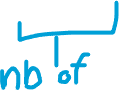 nb of